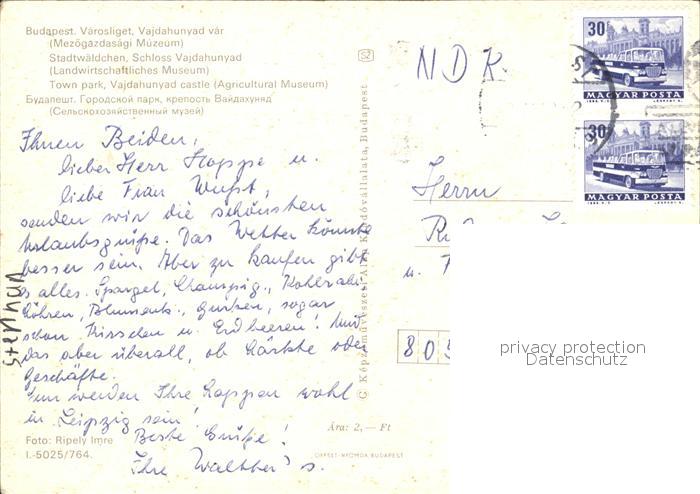 Budapest. Városliget, Vajdahunyad vár
(Mezőgazdasági Múzeum)
Stadtwäldchen, Schloss Vajdahunyad
(Landwirtschaftliches Museum)
Town park, Vajdahunyad castle (Agricultural Museum)
Будапешт. Городской парк, крепость Вайдахуняд
(Сельскохозяйственный музей)
Ihnen Beiden,
lieber Herr Hoppe u.
liebe Frau Wußt,
senden wir die schönsten
Urlaubsgrüße. Das Wetter könnte
besser sein. Aber zu kaufen gibt
es alles. Spargel, Champig., Kohlrabi
Möhren, Blumenk., Gurken, sogar
schon Kirschen u. Erdbeeren! Und
das aber überall, ob Märkte oder
Geschäfte.
Nun werden Ihre wohl
in Leipzig sein!
Beste Grüße!
Ihre Walther's.
Stephan
Foto: Ripely Imre
I.-5025/764.
Ára: 2,— Ft
OFFSET-NYOMDA BUDAPEST
© Képzőművészeti Alap Kiadóvállalata, Budapest
NDR
30f
MAGYAR POSTA
30f
MAGYAR POSTA
Herrn
u.
805
privacy protection
Datenschutz